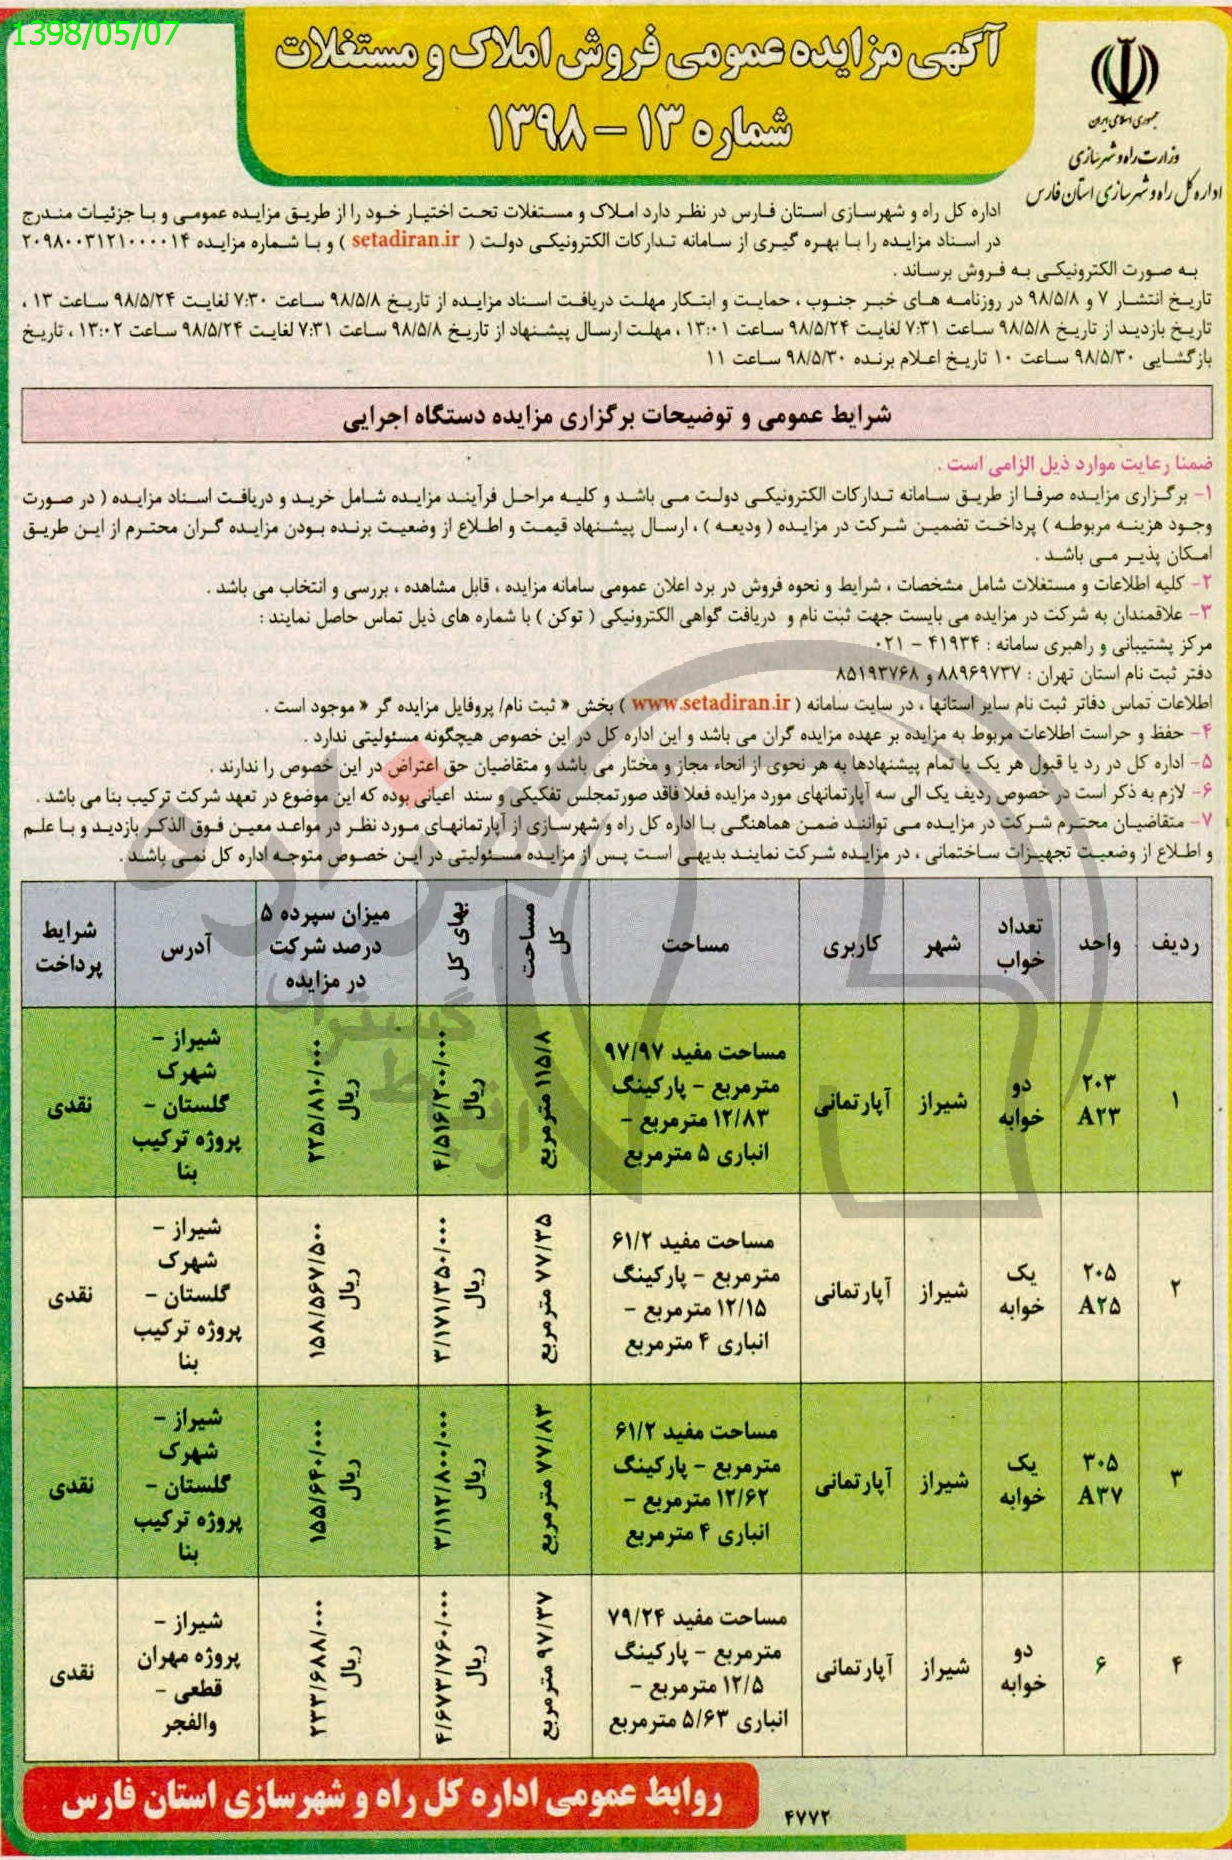 1398/05/07
آگهی مزایده عمومی فروش املاک و مستغلات
شماره ۱۳ – ۱۳۹۸
جمهوری اسلامی ایران
وزارت راه و شهرسازی
اداره کل راه و شهرسازی استان فارس
اداره کل راه و شهرسازی استان فارس در نظر دارد املاک و مستغلات تحت اختیار خود را از طریق مزایده عمومی و با جزئیات مندرج
در اسناد مزایده را با بهره گیری از سامانه تدارکات الکترونیکی دولت ( setadiran.ir ) و با شماره مزایده ۲۰۹۸۰۰۳۱۲۱۰۰۰۰۱۴
به صورت الکترونیکی به فروش برساند .
تاریخ انتشار ۷ و ۹۸/۵/۸ در روزنامه های خبر جنوب ، حمایت و ابتکار مهلت دریافت اسناد مزایده از تاریخ ۹۸/۵/۸ ساعت ۷:۳۰ لغایت ۹۸/۵/۲۴ ساعت ۱۳ ،
تاریخ بازدید از تاریخ ۹۸/۵/۸ ساعت ۷:۳۱ لغایت ۹۸/۵/۲۴ ساعت ۱۳:۰۱ ، مهلت ارسال پیشنهاد از تاریخ ۹۸/۵/۸ ساعت ۷:۳۱ لغایت ۹۸/۵/۲۴ ساعت ۱۳:۰۲ ، تاریخ
بازگشایی ۹۸/۵/۳۰ ساعت ۱۰ تاریخ اعلام برنده ۹۸/۵/۳۰ ساعت ۱۱
شرایط عمومی و توضیحات برگزاری مزایده دستگاه اجرایی
ضمنا رعایت موارد ذیل الزامی است .
۱- برگزاری مزایده صرفا از طریق سامانه تدارکات الکترونیکی دولت می باشد و کلیه مراحل فرآیند مزایده شامل خرید و دریافت اسناد مزایده ( در صورت
وجود هزینه مربوطه ) پرداخت تضمین شرکت در مزایده ( ودیعه ) ، ارسال پیشنهاد قیمت و اطلاع از وضعیت برنده بودن مزایده گران محترم از این طریق
امکان پذیر می باشد .
۲- کلیه اطلاعات و مستغلات شامل مشخصات ، شرایط و نحوه فروش در برد اعلان عمومی سامانه مزایده ، قابل مشاهده ، بررسی و انتخاب می باشد .
۳- علاقمندان به شرکت در مزایده می بایست جهت ثبت نام و دریافت گواهی الکترونیکی ( توکن ) با شماره های ذیل تماس حاصل نمایند :
مرکز پشتیبانی و راهبری سامانه : ۴۱۹۳۴ – ۰۲۱
دفتر ثبت نام استان تهران : ۸۸۹۶۹۷۳۷ و ۸۵۱۹۳۷۶۸
اطلاعات تماس دفاتر ثبت نام سایر استانها ، در سایت سامانه ( www.setadiran.ir ) بخش « ثبت نام/ پروفایل مزایده گر » موجود است .
۴- حفظ و حراست اطلاعات مربوط به مزایده بر عهده مزایده گران می باشد و این اداره کل در این خصوص هیچگونه مسئولیتی ندارد .
۵- اداره کل در رد یا قبول هر یک یا تمام پیشنهادها به هر نحوی از انحاء مجاز و مختار می باشد و متقاضیان حق اعتراض در این خصوص را ندارند .
۶- لازم به ذکر است در خصوص ردیف یک الی سه آپارتمانهای مورد مزایده فعلا فاقد صورتمجلس تفکیکی و سند اعیانی بوده که این موضوع در تعهد شرکت ترکیب بنا می باشد .
۷- متقاضیان محترم شرکت در مزایده می توانند ضمن هماهنگی با اداره کل راه و شهرسازی از آپارتمانهای مورد نظر در مواعد معین فوق الذکر بازدید و با علم
و اطلاع از وضعیت تجهیزات ساختمانی ، در مزایده شرکت نمایند بدیهی است پس از مزایده مسئولیتی در این خصوص متوجه اداره کل نمی باشد .
ردیف | واحد | تعداد خواب | شهر | کاربری | مساحت | مساحت کل | بهای کل | میزان سپرده ۵ درصد شرکت در مزایده | آدرس | شرایط پرداخت
۱ | ۲۰۳ A۲۳ | دو خوابه | شیراز | آپارتمانی | مساحت مفید ۹۷/۹۷ مترمربع – پارکینگ ۱۲/۸۳ مترمربع – انباری ۵ مترمربع | ۱۱۵/۸ مترمربع | ۴/۵۱۶/۲۰۰/۰۰۰ ریال | ۲۲۵/۸۱۰/۰۰۰ ریال | شیراز – شهرک گلستان – پروژه ترکیب بنا | نقدی
۲ | ۲۰۵ A۲۵ | یک خوابه | شیراز | آپارتمانی | مساحت مفید ۶۱/۲ مترمربع – پارکینگ ۱۲/۱۵ مترمربع – انباری ۴ مترمربع | ۷۷/۳۵ مترمربع | ۳/۱۷۱/۳۵۰/۰۰۰ ریال | ۱۵۸/۵۶۷/۵۰۰ ریال | شیراز – شهرک گلستان – پروژه ترکیب بنا | نقدی
۳ | ۳۰۵ A۳۷ | یک خوابه | شیراز | آپارتمانی | مساحت مفید ۶۱/۲ مترمربع – پارکینگ ۱۲/۶۲ مترمربع – انباری ۴ مترمربع | ۷۷/۸۳ مترمربع | ۳/۱۱۲/۸۰۰/۰۰۰ ریال | ۱۵۵/۶۴۰/۰۰۰ ریال | شیراز – شهرک گلستان – پروژه ترکیب بنا | نقدی
۴ | ۶ | دو خوابه | شیراز | آپارتمانی | مساحت مفید ۷۹/۲۴ مترمربع – پارکینگ ۱۲/۵ مترمربع – انباری ۵/۶۳ مترمربع | ۹۷/۳۷ مترمربع | ۴/۶۷۳/۷۶۰/۰۰۰ ریال | ۲۳۳/۶۸۸/۰۰۰ ریال | شیراز – پروژه مهران قطعی – والفجر | نقدی
روابط عمومی اداره کل راه و شهرسازی استان فارس
۴۷۷۲